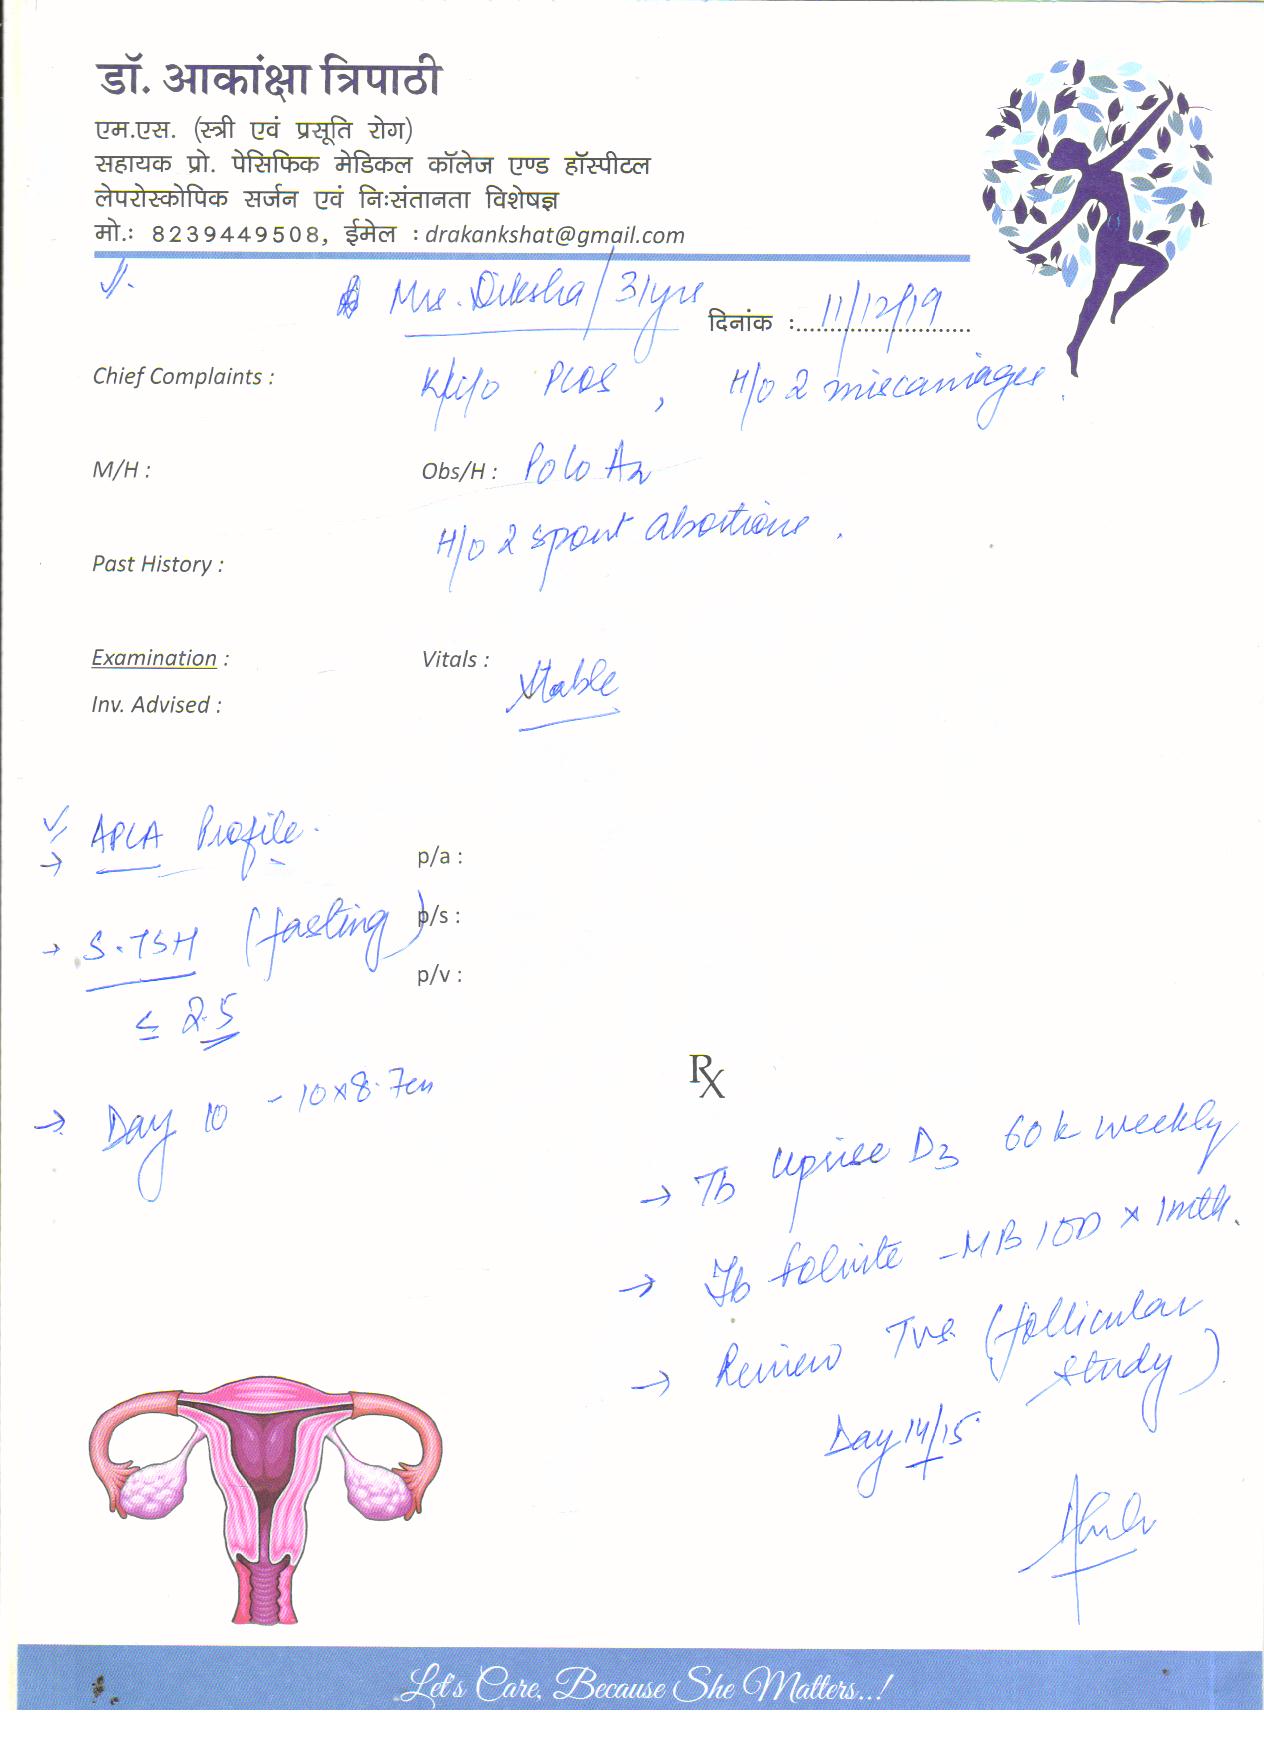 डॉ. आकांक्षा त्रिपाठी
एम.एस. (स्त्री एवं प्रसूति रोग)
सहायक प्रो. पेसिफिक मेडिकल कॉलेज एण्ड हॉस्पीटल
लेपरोस्कोपिक सर्जन एवं निःसंतानता विशेषज्ञ
मो.: 8239449508, ईमेल : drakankshat@gmail.com
Mrs. Diksha / 31yrs
दिनांक :.. 11/12/19
Chief Complaints : K/c/o PCOS , H/o 2 miscarriages.
M/H : Obs/H : P0L0 A2
H/o 2 spont abortions .
Past History :
Examination : Vitals : Stable
Inv. Advised :
→ APLA Profile.
p/a :
→ S.TSH (fasting)
p/s :
p/v :
≤ 2.5
Rx
→ Day 10 - 10x8.7cm
→ Tb Uprise D3 60k weekly
→ Tb -MB 1OD x 1mth.
→ Review TVS (follicular
study)
Day 14/15
Let's Care, Because She Matters..!